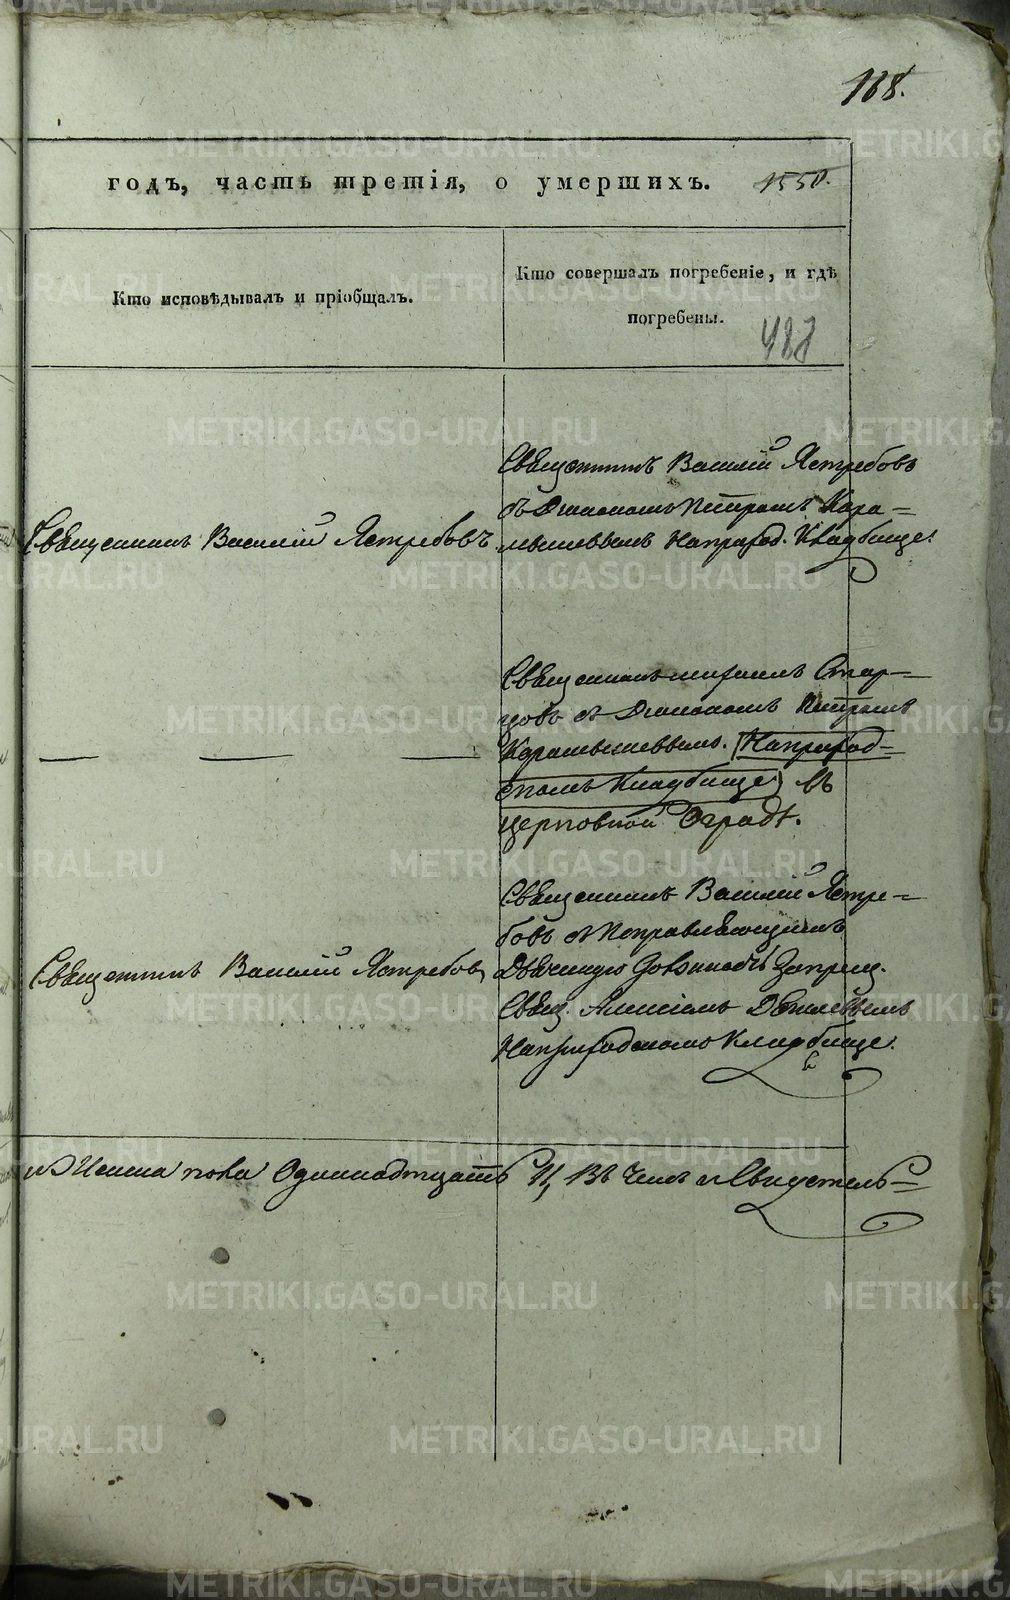 188.
годъ, часть третія, о умершихъ. 1550.
Кто исповѣдывалъ и пріобщалъ.
Кто совершалъ погребеніе, и гдѣ
погребены.
Священникъ Василій Ястребовъ
съ Діакономъ Петромъ Кара=
Священникъ Василій Ястребовъ.
мышевымъ На природ. Кладбище.
Священникъ Стар=
цовъ съ Діакономъ Петромъ
Карамышевымъ. (На пригод=
скомъ Кладбище) въ
церковной Оградѣ.
Священникъ Василій Ястре=
бовъ съ Исправляющимъ
Священникъ Василій Ястребовъ
Дьяческую Должность Запрещ.
Свящ.
На пригодскомъ Кладбище.
Одиннадцать В Чемъ и Свидетель=
METRIKI.GASO-URAL.RU